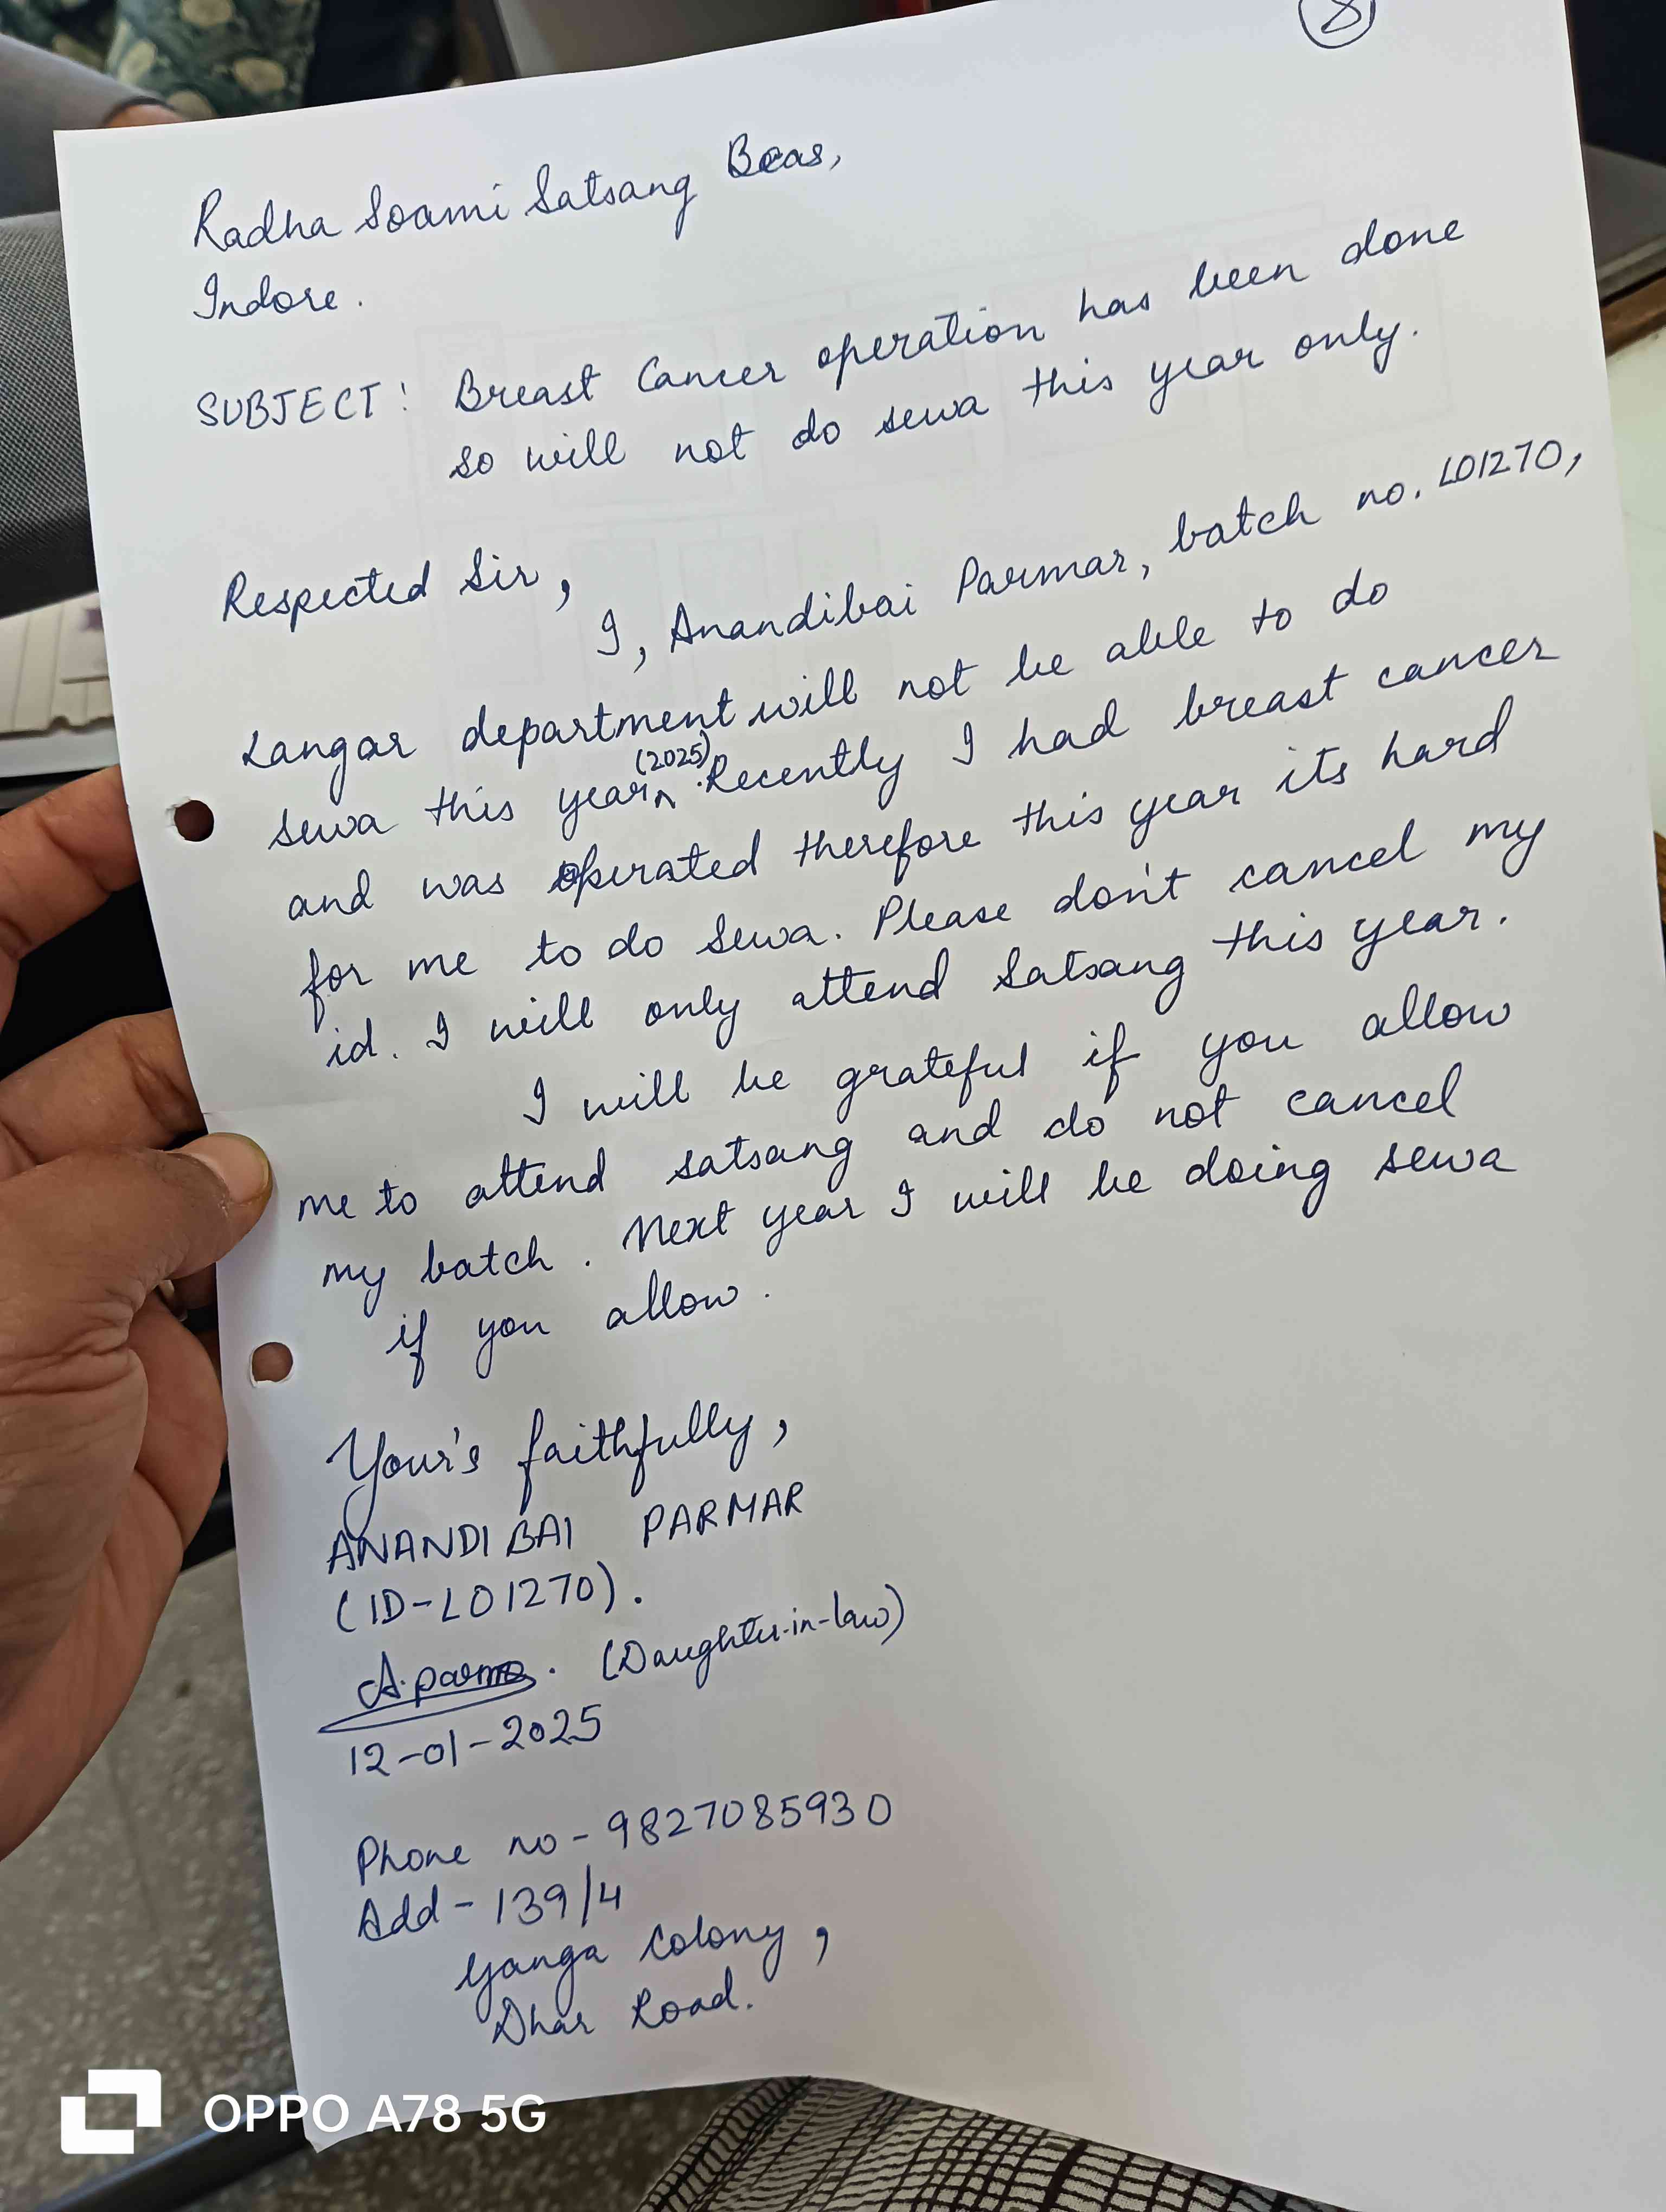 8
Radha Soami Satsang Beas,
Indore.
SUBJECT: Breast Cancer operation has been done
so will not do sewa this year only.
Respected Sir,
I, Anandibai Parmar, batch no. L01270,
Langar department will not be able to do
sewa this year (2025). Recently I had breast cancer
and was operated therefore this year its hard
for me to do sewa. Please don't cancel my
id. I will only attend Satsang this year.
I will be grateful if you allow
me to attend satsang and do not cancel
my batch. Next year I will be doing sewa
if you allow.
Your's faithfully,
ANANDIBAI PARMAR
(ID-L01270).
(Daughter-in-law)
12-01-2025
Phone no - 9827085930
Add - 139/4
Ganga Colony,
Dhar Road.
OPPO A78 5G